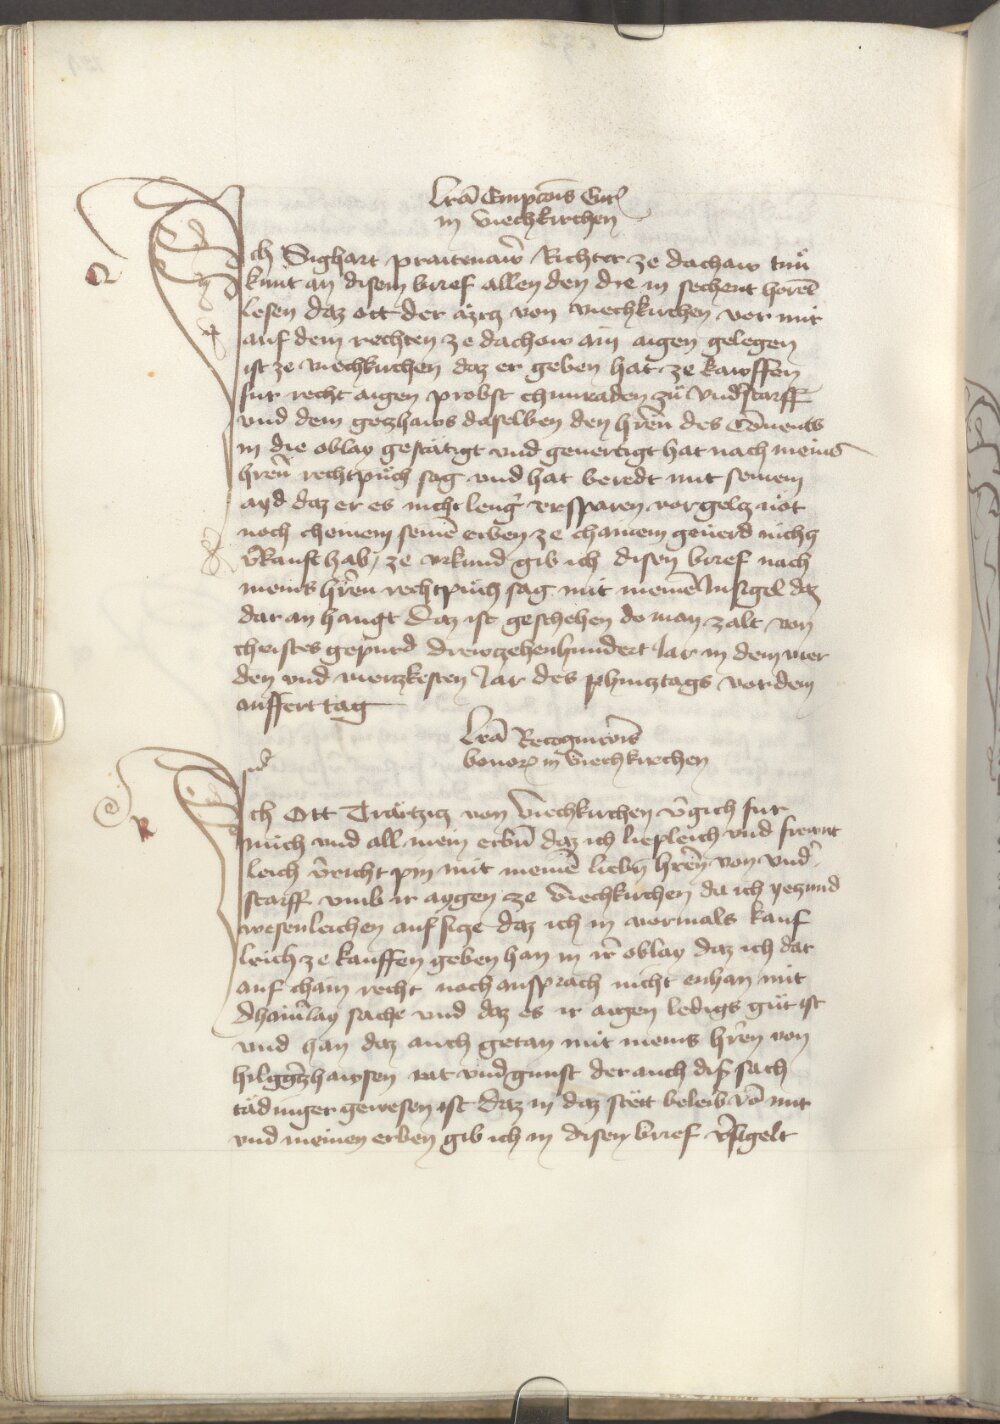 Lrã Empcõis Cur̃
in viechkirchen
Q
Ich Sighart praitenaw̃ Richter ze dachaw tuͤ
kunt an disem brief allen den die in sechent hoͤrẽt
lesen daz ott der äxtz von viechkirchen vor mir
auf dem rechten ze dachaw ain aigen gelegen
ist ze viechkirchen daz er geben hat ze kawffen
fur recht aigen probst chunraden zuͤ vnd̃starff
vnd dem gotzhaws daselben den hrẽn des Cõuents
in die oblay gestätigt vnd geuertigt hat nach meins
hrẽn rechtpuͤch sag vnd hat beredt mit seinem
ayd daz er es nicht leng̃ ersparen vor geltz nöt
noch cheinem seinẽ erben ze chainem geuerd nichtz
ṽkauft hab / ze vrkund gib ich disen brief nach
meins hrẽn rechtpuͤch sag mit meinẽ Insigel daz
dar an hangt Daz ist geschehen do man zalt von
christes gepurd drewzehenhundert Jar in dem vier
den vnd viertzkesten Jar des phintztags vor dem
auffert tag
Lrã Recognicõis
bonoꝝ in viechkirchen
R
Ich Ott Trätzig von viechkirchen ṽgich fur
mich vnd all mein erbñ daz ich liepleich vnd frewnt
leich ṽricht pin mit meinẽ liebñ hrẽn von vnd̃
starff vmb ir aygen ze viechkirchen da ich yetzund
wesenleichen auf sitze daz ich in vormals kauf
leich ze kauffen geben han in ir̃ oblay daz ich dar
auf chain recht noch ansprach nicht enhan mit
dhainr̃lay sache vnd daz es ir aigen ledigs guͤt ist
vnd han daz auch getan mit meins hrẽn von
hilggtzhawsen rat vnd gunst der auch disr̃ sach
tädinger gewesen ist Daz in daz stett beleib võ mir
vnd meinen erben gib ich in disen brief ṽsigelt